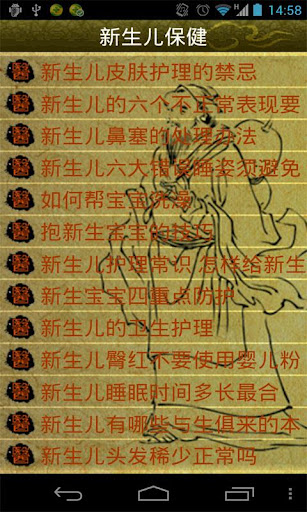 14:58
新生儿保健
醫 新生儿皮肤护理的禁忌
醫 新生儿的六个不正常表现要
醫 新生儿鼻塞的处理办法
醫 新生儿六大错误睡姿须避免
醫 如何帮宝宝洗澡
醫 抱新生宝宝的技巧
醫 新生儿护理常识 怎样给新生
醫 新生宝宝四重点防护
醫 新生儿的卫生护理
醫 新生儿臀红不要使用婴儿粉
醫 新生儿睡眠时间多长最合
醫 新生儿有哪些与生俱来的本
醫 新生儿头发稀少正常吗